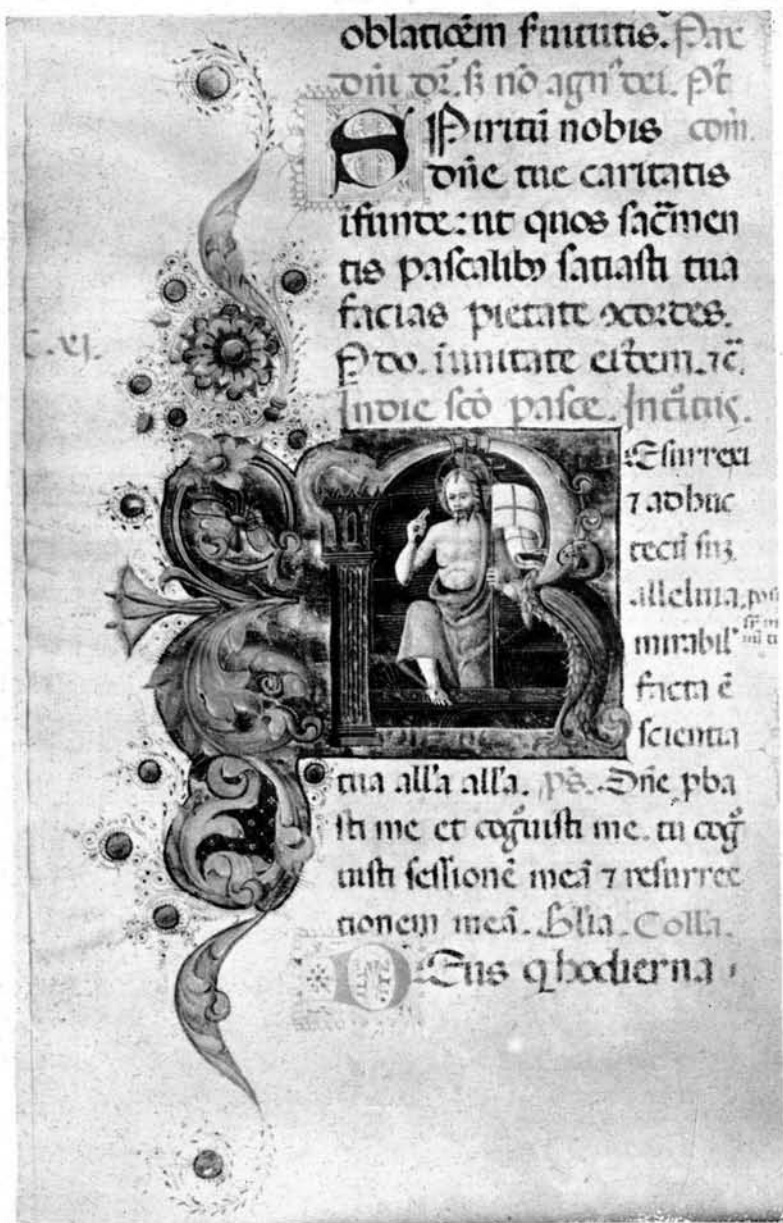 oblatiõem suiutis. Pax
dñi dr̃. s; nõ agn᾽ dei. Pt̃
SPiritũ nobis com̃.
dñe tue caritatis
ĩfunde: ut quos sac̃men
tis pascalibꝫ satiasti tua
facias pietate ↄcordes.
P do. ĩ unitate eiusdem. ⁊c̃.
In die sc̃o pasce. Introitus.
REsurrexi
⁊ adhuc
tecũ suꝫ
alleluia.
mirabil᾽
facta ẽ
scientia
tua all'a all'a. ps̃. Dñe ꝓba
sti me et cog᷑uisti me. tu cog᷑
uisti sessionẽ meã ⁊ resurrec
tionem meã. Gl̃ia. Coll̃a.
DEus q hodierna